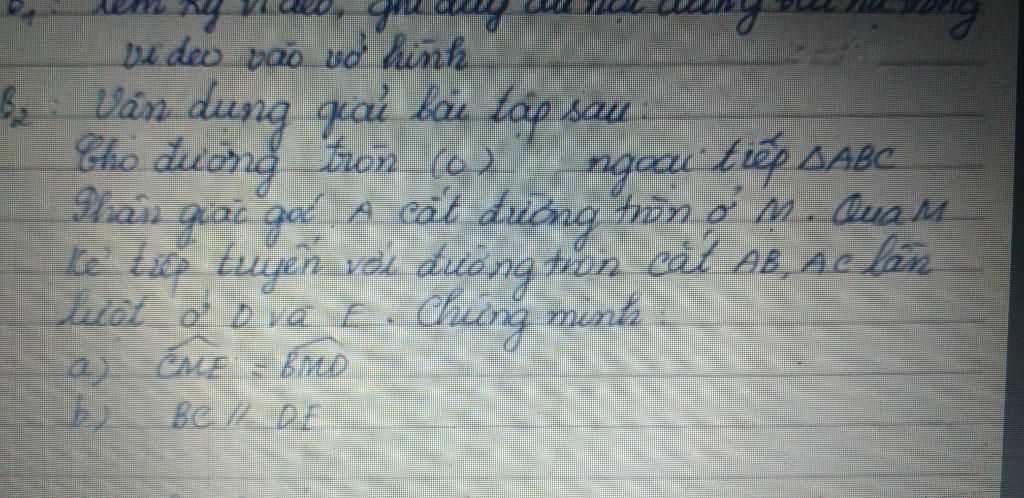 B1: Xem kỹ video, ghi đầy đủ nội dung bài trong
video vào vở hình
B2: Vân dung giải bài tâp sau:
Cho đường tròn (O) ngoại tiếp ΔABC
Phân giác góc A cắt đường tròn ở M. Qua M
kẻ tiếp tuyến với đường tròn cắt AB, AC lần
lượt ở D và E. Chứng minh:
a) CME = BMD
b) BC // DE